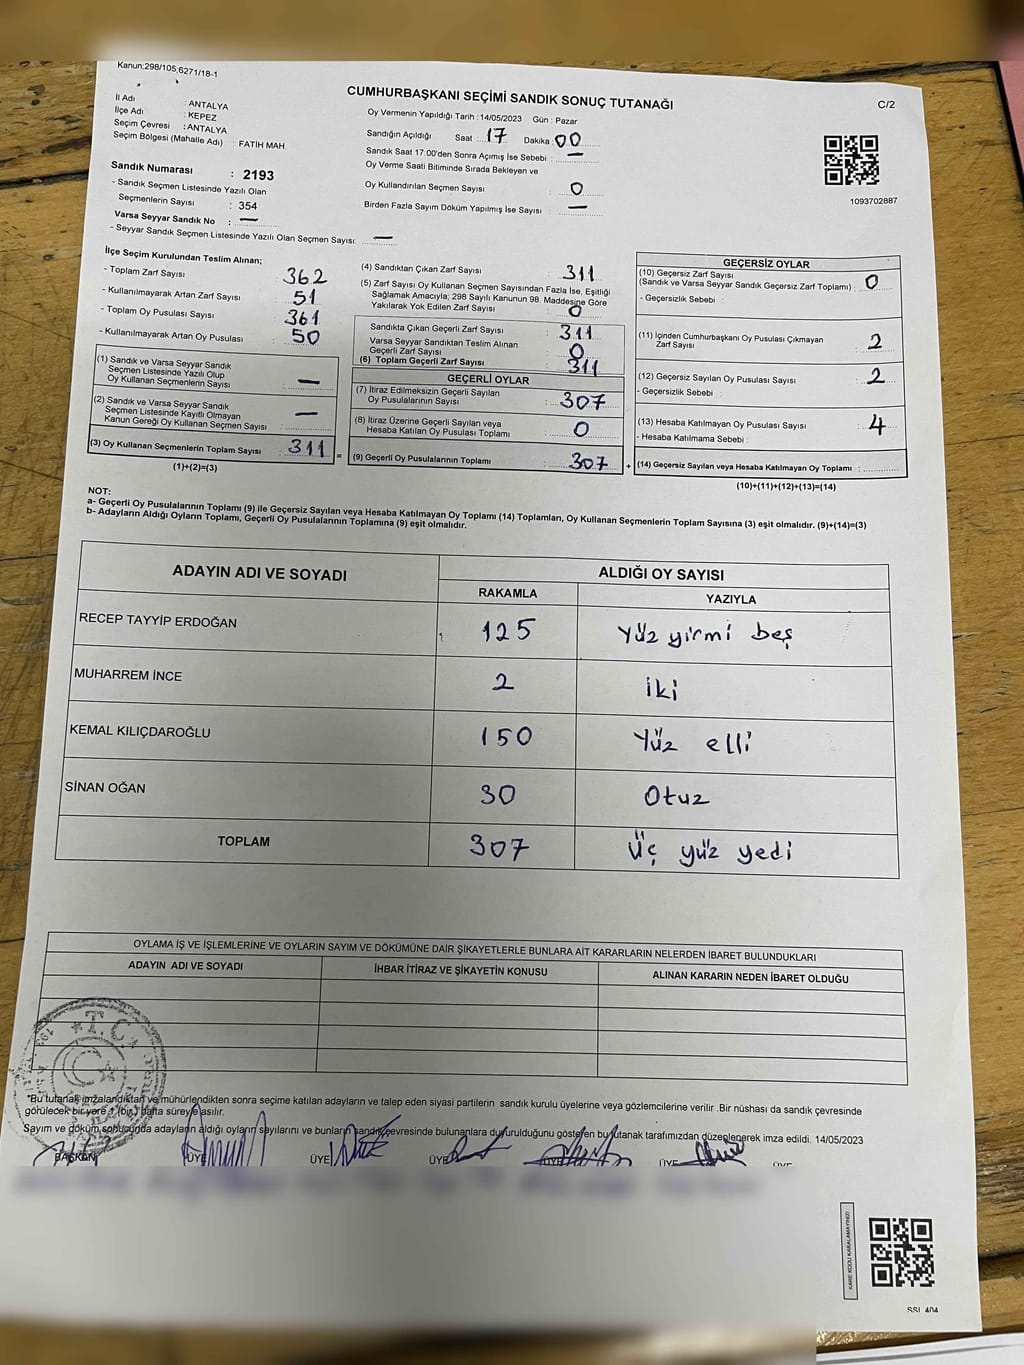 Kanun;298/105;6271/18-1
CUMHURBAŞKANI SEÇİMİ SANDIK SONUÇ TUTANAĞI
C/2
İl Adı : ANTALYA
İlçe Adı : KEPEZ
Seçim Çevresi : ANTALYA
Seçim Bölgesi (Mahalle Adı) : FATİH MAH.
Oy Vermenin Yapıldığı Tarih :14/05/2023 Gün : Pazar
Sandığın Açıldığı Saat : 17 Dakika : 00
Sandık Saat 17:00'den Sonra Açımış İse Sebebi : —
Oy Verme Saati Bitiminde Sırada Bekleyen ve
Oy Kullandırılan Seçmen Sayısı : 0
Birden Fazla Sayım Döküm Yapılmış İse Sayısı : —
1093702887
Sandık Numarası : 2193
- Sandık Seçmen Listesinde Yazılı Olan
Seçmenlerin Sayısı : 354
Varsa Seyyar Sandık No : —
- Seyyar Sandık Seçmen Listesinde Yazılı Olan Seçmen Sayısı: —
İlçe Seçim Kurulundan Teslim Alınan;
- Toplam Zarf Sayısı : 362
- Kullanılmayarak Artan Zarf Sayısı : 51
- Toplam Oy Pusulası Sayısı : 361
- Kullanılmayarak Artan Oy Pusulası : 50
(1) Sandık ve Varsa Seyyar Sandık
Seçmen Listesinde Yazılı Olup
Oy Kullanan Seçmenlerin Sayısı : —
(2) Sandık ve Varsa Seyyar Sandık
Seçmen Listesinde Kayıtlı Olmayan
Kanun Gereği Oy Kullanan Seçmen Sayısı : —
(3) Oy Kullanan Seçmenlerin Toplam Sayısı : 311
(1)+(2)=(3)
(4) Sandıktan Çıkan Zarf Sayısı : 311
(5) Zarf Sayısı Oy Kullanan Seçmen Sayısından Fazla İse, Eşitliği
Sağlamak Amacıyla; 298 Sayılı Kanunun 98. Maddesine Göre
Yakılarak Yok Edilen Zarf Sayısı : 0
Sandıkta Çıkan Geçerli Zarf Sayısı : 311
Varsa Seyyar Sandıktan Teslim Alınan
Geçerli Zarf Sayısı : 0
(6) Toplam Geçerli Zarf Sayısı : 311
GEÇERLİ OYLAR
(7) İtiraz Edilmeksizin Geçerli Sayılan
Oy Pusulalarının Sayısı : 307
(8) İtiraz Üzerine Geçerli Sayılan veya
Hesaba Katılan Oy Pusulası Toplamı : 0
= (9) Geçerli Oy Pusulalarının Toplamı : 307
GEÇERSİZ OYLAR
(10) Geçersiz Zarf Sayısı
(Sandık ve Varsa Seyyar Sandık Geçersiz Zarf Toplamı) : 0
- Geçersizlik Sebebi :
(11) İçinden Cumhurbaşkanı Oy Pusulası Çıkmayan
Zarf Sayısı : 2
(12) Geçersiz Sayılan Oy Pusulası Sayısı : 2
- Geçersizlik Sebebi :
(13) Hesaba Katılmayan Oy Pusulası Sayısı : 4
- Hesaba Katılmama Sebebi :
+ (14) Geçersiz Sayılan veya Hesaba Katılmayan Oy Toplamı :
(10)+(11)+(12)+(13)=(14)
NOT:
a- Geçerli Oy Pusulalarının Toplamı (9) ile Geçersiz Sayılan veya Hesaba Katılmayan Oy Toplamı (14) Toplamları, Oy Kullanan Seçmenlerin Toplam Sayısına (3) eşit olmalıdır. (9)+(14)=(3)
b- Adayların Aldığı Oyların Toplamı, Geçerli Oy Pusulalarının Toplamına (9) eşit olmalıdır.
ADAYIN ADI VE SOYADI ALDIĞI OY SAYISI
RAKAMLA YAZIYLA
RECEP TAYYİP ERDOĞAN 125 Yüz yirmi beş
MUHARREM İNCE 2 iki
KEMAL KILIÇDAROĞLU 150 Yüz elli
SİNAN OĞAN 30 Otuz
TOPLAM 307 Üç yüz yedi
OYLAMA İŞ VE İŞLEMLERİNE VE OYLARIN SAYIM VE DÖKÜMÜNE DAİR ŞİKAYETLERLE BUNLARA AİT KARARLARIN NELERDEN İBARET BULUNDUKLARI
ADAYIN ADI VE SOYADI İHBAR İTİRAZ VE ŞİKAYETİN KONUSU ALINAN KARARIN NEDEN İBARET OLDUĞU
T.C.
*Bu tutanak imzalandıktan ve mühürlendikten sonra seçime katılan adayların ve talep eden siyasi partilerin sandık kurulu üyelerine veya gözlemcilerine verilir .Bir nüshası da sandık çevresinde
görülecek bir yere 1 (bir) hafta süreyle asılır.
Sayım ve döküm sonucunda adayların aldığı oyların sayılarını ve bunların sandık çevresinde bulunanlara duyurulduğunu gösteren bu tutanak tarafımızdan düzenlenerek imza edildi. 14/05/2023
BAŞKAN ÜYE ÜYE ÜYE ÜYE ÜYE
KARE KODU KARALAMAYINIZ!